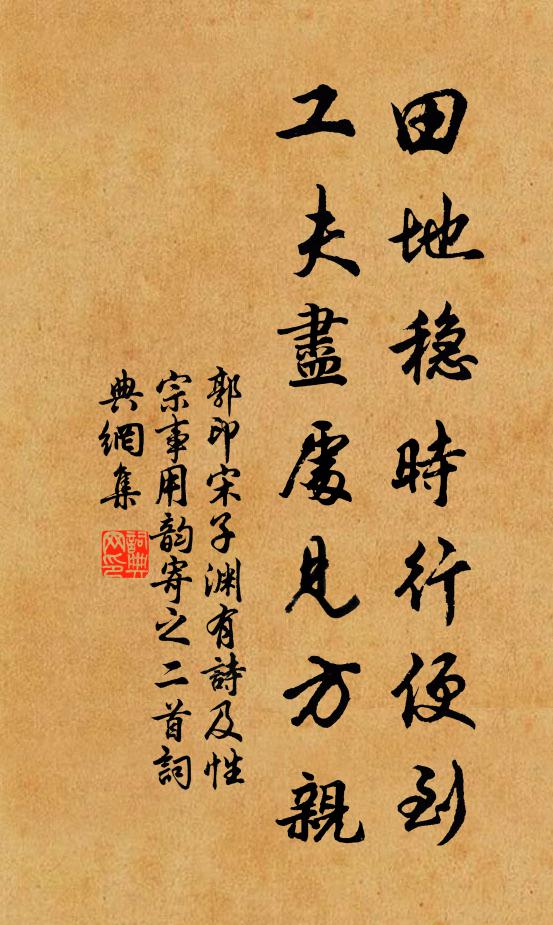 田地稳時行便到
工夫盡處見方親
郭印宋子渊有詩及性
宗事用韵寄之二首詞
典網集
詞典
网印